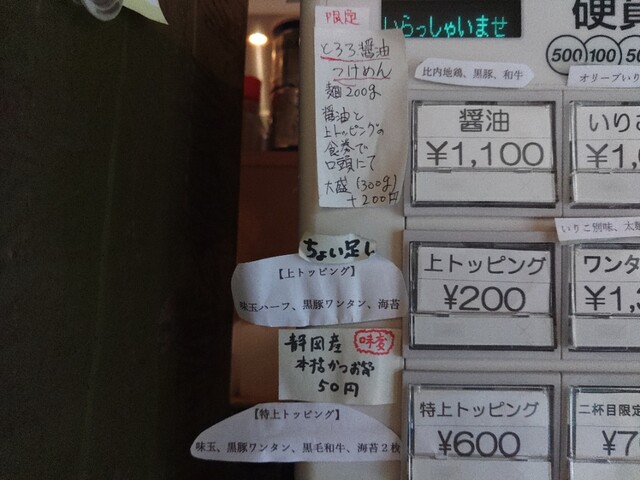 いらっしゃいませ
硬貨
500 100 50
限定
とろろ醤油
つけめん
麺200g
醤油と
上トッピングの
食券で
口頭にて
大盛(300g)
+200円
比内地鶏、黒豚、和牛
醤油
¥1,100
オリーブいり
いりこ
¥1,
いりこ別味、太
ちょい足し
【上トッピング】
味玉ハーフ、黒豚ワンタン、海苔
上トッピング
¥200
ワンタ
¥1,3
静岡産
味変
本枯かつお節
50円
【特上トッピング】
味玉、黒豚ワンタン、黒毛和牛、海苔2枚
特上トッピング
¥600
二杯目限定
¥7